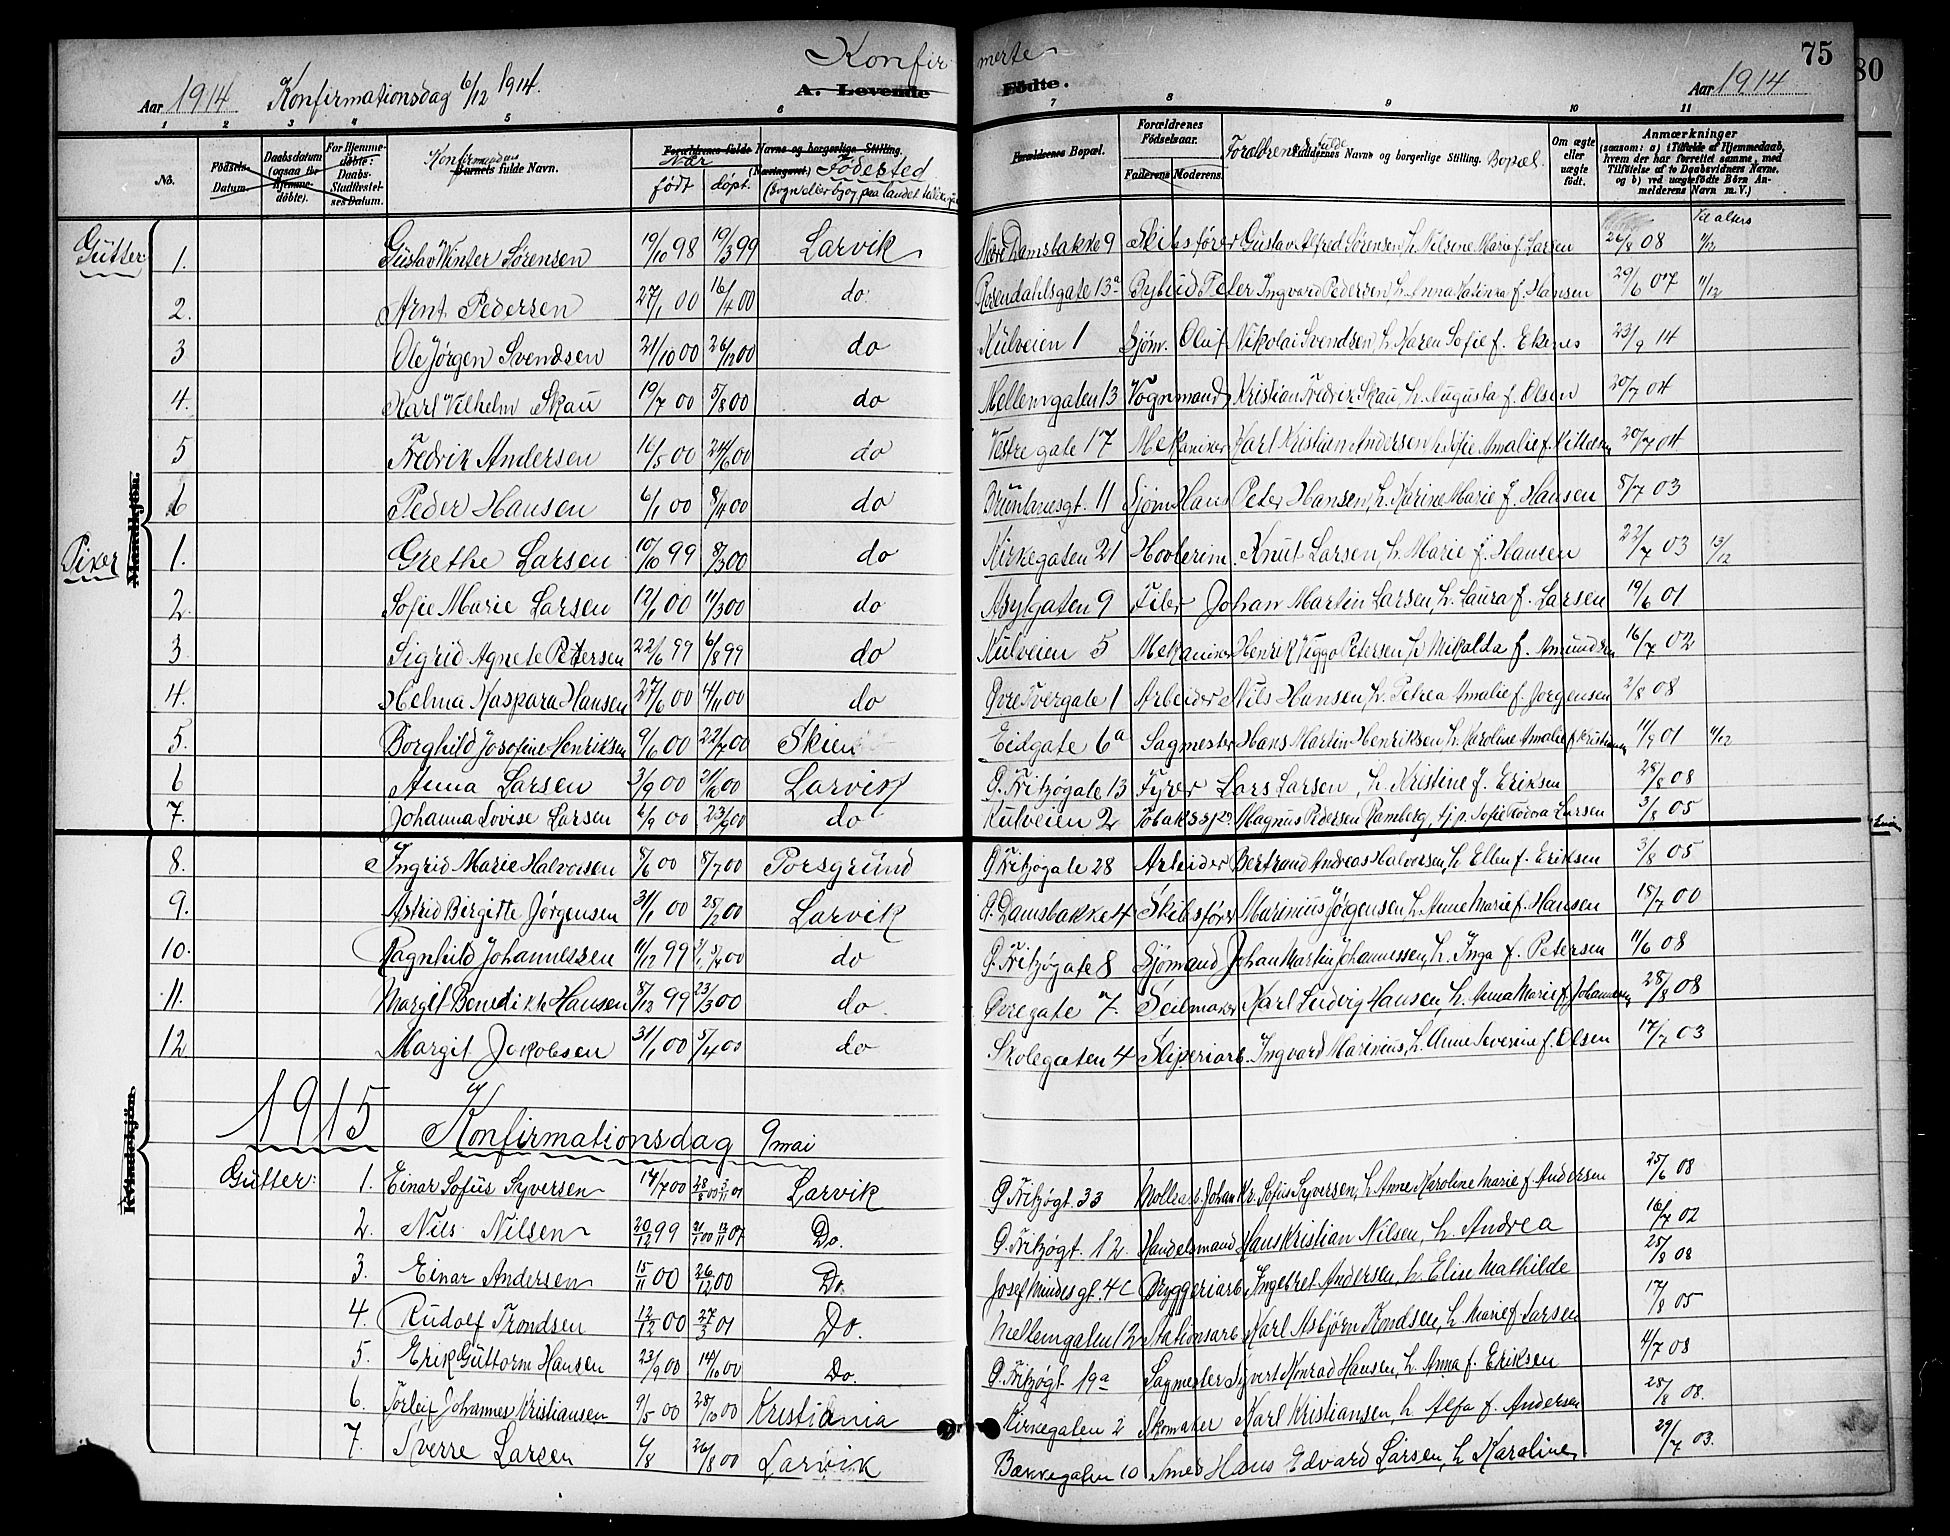 Konfirmerte
75
80
Aar 1914 Konfirmationsdag 6/12 1914.
A. Levende Fødte.
Aar 1914
1 2 3 4 5 6 7 8 9 10 11
No. Fødsels-Datum. Daabsdatum (ogsaa for hjemmedøbte). For Hjemmedøbte: Daabs-Stadfæstelses-Datum. Konfirmandens Barnets fulde Navn. Forældrenes fulde Navne og borgerlige Stilling. (Næringsvei.) Når født døpt. Fødested (Sogn eller by, og paa landet tillike
Forældrenes Bopæl. Forældrenes Fødselsaar. Faderens Moderens. Forældrenes fulde Faddernes Navne og borgerlige Stilling. Bopæl. Om ægte eller uægte født. Anmærkninger (saasom: a) i Tilfælde af Hjemmedaab, hvem der har forrettet samme, med Tilføielse af to Daabsvidners Navne, og b) ved uægtefødte Børn Anmelderens Navn m. V.)
Til alters
Gutter
Mandkjøn.
1. Gustav Winter Sørensen 19/10 98 19/3 99 Larvik Nedre Damsbakke 9 Skibsfører Gustav Alfred Sørensen, h. Nilsine Marie f. Larsen 26/8 08 11/12
2. Arnt Pedersen 27/1 00 16/4 00 do Rosendahlsgate 13a Bybud Peter Ingvard Pedersen h. Anna Katinka f. Hansen 29/6 07 11/12
3 Ole Jørgen Svendsen 21/10 00 26/12 00 do Kulveien 1 Sjøm. Oluf Nikolai Svendsen, h. Karen Sofie f. Ekenes 23/9 14
4. Karl Vilhelm Skau 19/7 00 5/8 00 do Mellemgaten 13 Vognmand Kristian Fredrik Skau, h. Augusta f. Olsen 20/7 04
5 Fredrik Andersen 16/5 00 24/6 00 do Vestre gate 17 Mekaniker Karl Kristian Andersen, h. Sofie Amalie f. 20/7 04
6 Peder Hansen 6/1 00 8/4 00 do 11 Sjøm Hans Peter Hansen, h. Karine Marie f. Hansen 8/7 03
Piker
1. Grethe Larsen 10/10 99 8/3 00 do Kirkegaten 21 Knut Larsen, h. Marie f. Hansen 22/7 03 13/12
2. Sofie Marie Larsen 12/1 00 11/3 00 do Asylgaten 9 Filer Johan Martin Larsen, h. Laura f. Larsen 19/6 01
3 Sigrid Agnete Petersen 22/6 99 6/8 99 do Kulveien 5 Mekaniker Henrik Viggo Petersen h. Mikalda f. Amundsen 16/7 02
4. Helma Kaspara Hansen 27/6 00 4/11 00 do Øvre Tvergate 1 Arbeider Nils Hansen, h. Petrea Amalie f. Jørgensen 2/8 08
5. Borghild Josefine Henriksen 9/6 00 22/7 00 Skien Eidgate 6a Sagmester Hans Martin Henriksen, h. Karoline Amalie f. Kristiansen 11/9 01 11/12
6 Anna Larsen 3/9 00 21/10 00 Larvik Ø. Fritzøgate 13 Fyrbr Lars Larsen, h. Kristine f. Eriksen 28/8 08
7. Johanna Lovise Larsen 6/9 00 23/9 00 do Kulveien 2 Tobakssp. Magnus Pedersen Ramberg, tjp. Sofie Teodora Larsen 3/8 05
8. Ingrid Marie Halvorsen 8/6 00 8/7 00 Porsgrund Ø. Fritzøgate 28 Arbeider Bertrand Andreas Halvorsen, h. Ellen f. Eriksen 3/8 05
9. Astrid Birgitte Jørgensen 31/1 00 25/2 00 Larvik Ø. Damsbakke 4 Skibsfører Marinius Jørgensen h. Anne Marie f. Hansen 18/7 00
10. Ragnhild Johannessen 11/12 99 do Ø. Fritzøgate 8 Sjømand Johan Martin Johannessen, h. Inga f. Petersen 11/6 08
11. Margit Benedikte Hansen 8/12 99 23/3 00 do. Øvregate 7. Seilmaker Karl Ludvig Hansen, h. Anna Marie f. Johannesen 28/8 08
12 Margit Jakobsen 31/1 00 8/4 00 do Skolegaten 4 Sliperiarb. Ingvard Marinius, h. Anne Severine f. Olsen 17/7 03
Kvindekjøn.
1915 Konfirmationsdag 9 mai
Gutter: 1. Einar Sofus Syversen 14/7 00 28/8 00 3/11 01 Larvik Ø. Fritzøgt. 33 Johan Kr. Sofus Syversen, h. Anne Karoline Marie f. Andersen 25/6 08
2. Nils Nilsen 20/12 99 21/1 00 13/11 01 Do. Ø. Fritzøgt. 12. Handelsmand Hans Kristian Nilsen, h. Andrea 16/7 02
3. Einar Andersen 15/11 00 26/12 00 Do. Josef Mindes gt. 4c Bryggeriarb. Ingebret Andersen, h. Elise Mathilde 25/8 08
4. Rudolf Trondsen 12/12 00 27/3 01 Do. Mellemgaten 12 Stationsarb Karl Asbjørn Trondsen, h. Marie f. Larsen 17/8 05
5. Erik Guttorm Hansen 23/9 00 14/10 00 Do. Ø. Fritzøgt. 19a Sagmester Syvert Konrad Hansen, h. Anna f. Eriksen 4/7 08
6. Torleif Johannes Kristiansen 9/5 00 28/10 00 Kristiania Kirkegaten 2 Skomaker Karl Kristiansen, h. Alfa f. Andersen 28/8 08.
7. Sverre Larsen 4/8 26/8 00 Larvik Bækkegaten 10 Smed Hans Edvard Larsen, h. Karoline 29/7 03.